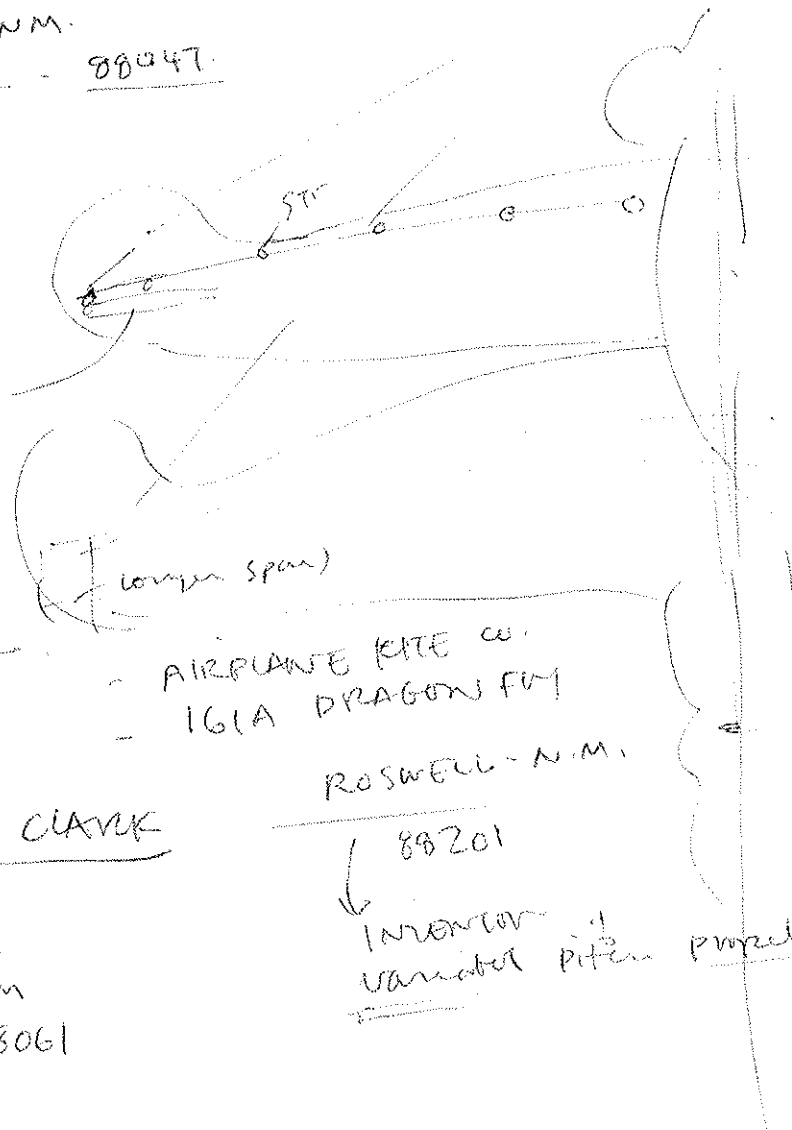 N.M.
- 88047.
STr
longer span)
- AIRPLANE KITE CO.
- 161A DRAGON FLY
CLARK
ROSWELL - N.M.
88201
INVENTOR of
variable pitch propel
m
8061